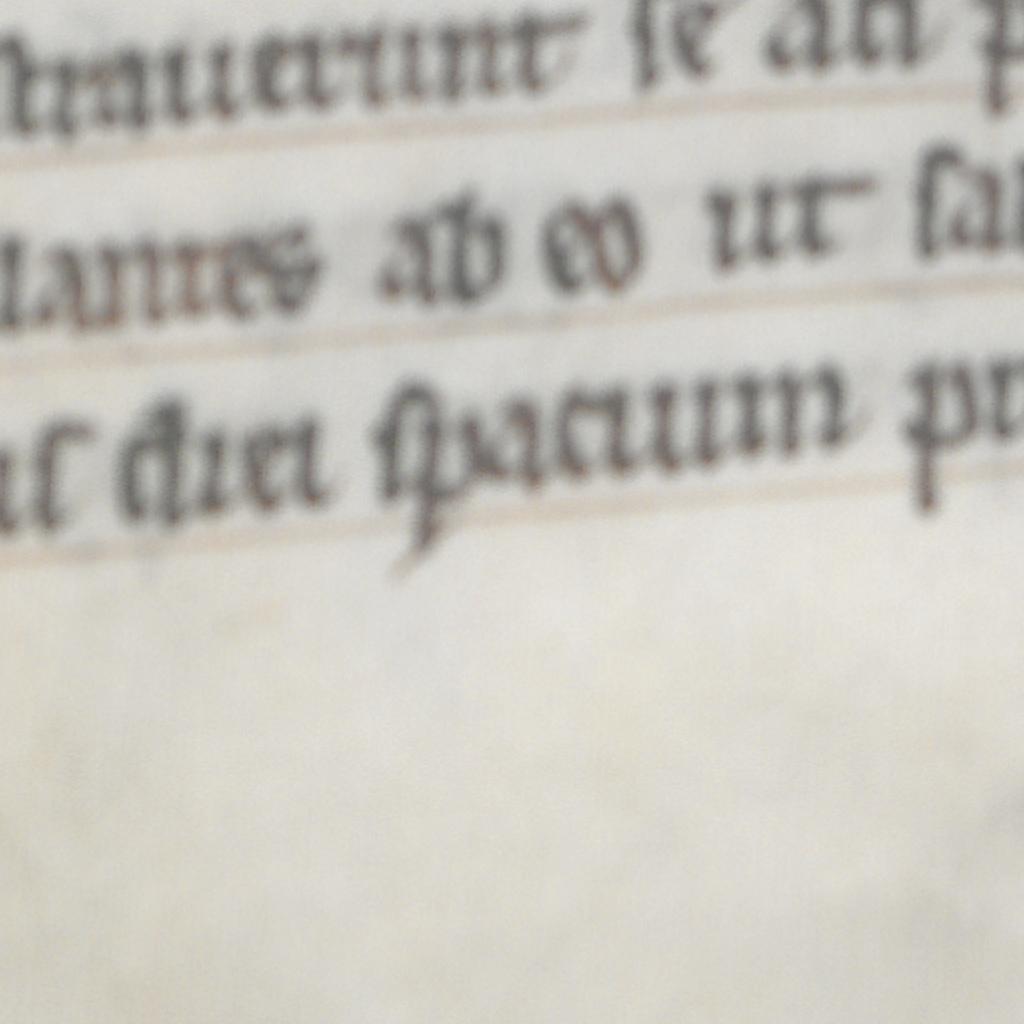 strauerunt se ad p
lantes ab eo ut sal
us diei spacium pr